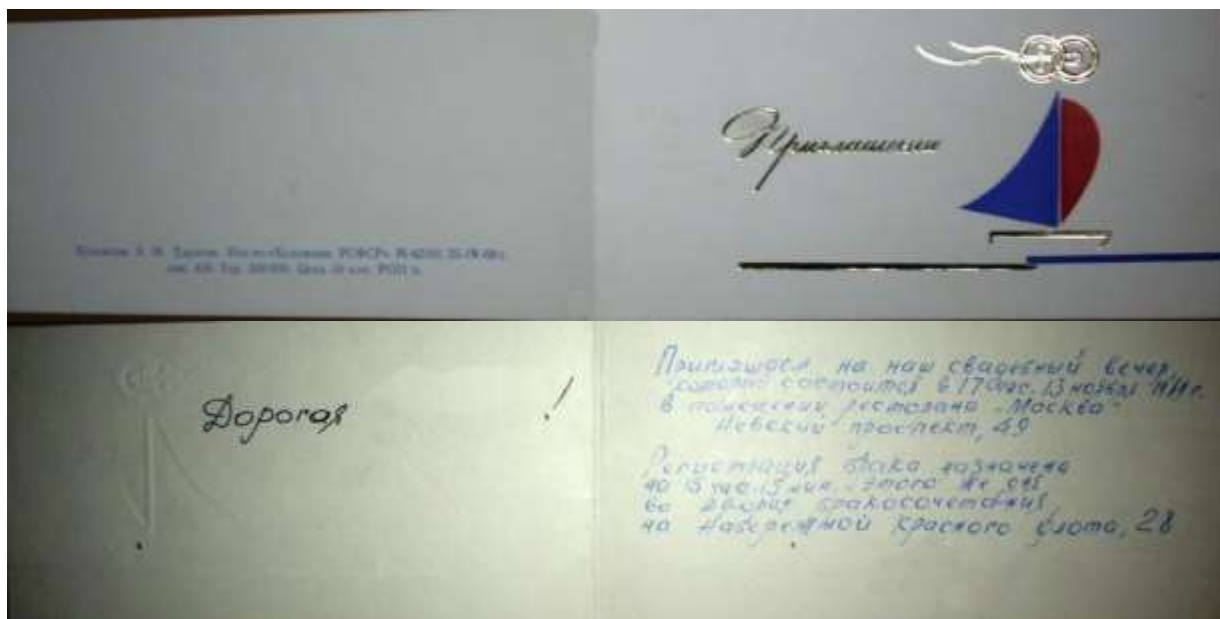 Приглашение
Дорогая !
Приглашаем на наш свадебный вечер,
который состоится в 17 час. 13 ноября
в помещении ресторана „Москва"
Невский проспект, 49
Регистрация брака назначена
на 15 час 15 мин. этого же дня
во Дворце бракосочетания
на Набережной Красного флота, 28